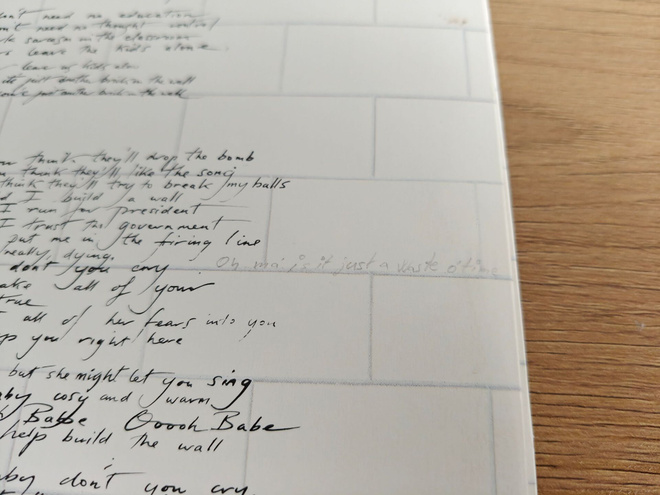 don't need no education
don't need no thought control
sarcasm in the classroom
leave the kids alone.
leave us kids alone
just another brick in the wall
just another brick in the wall
think they'll drop the bomb
think they'll like the song
think they'll try to break my balls
I build a wall
I run for president
I trust the government
put me in the firing line
really dying.
don't you cry Oh ma, is it just a waste o' time
all of your
true
all of her fears into you
you right here
but she might let you sing
cosy and warm
Babbe Ooooh Babe
help build the wall
don't you cry